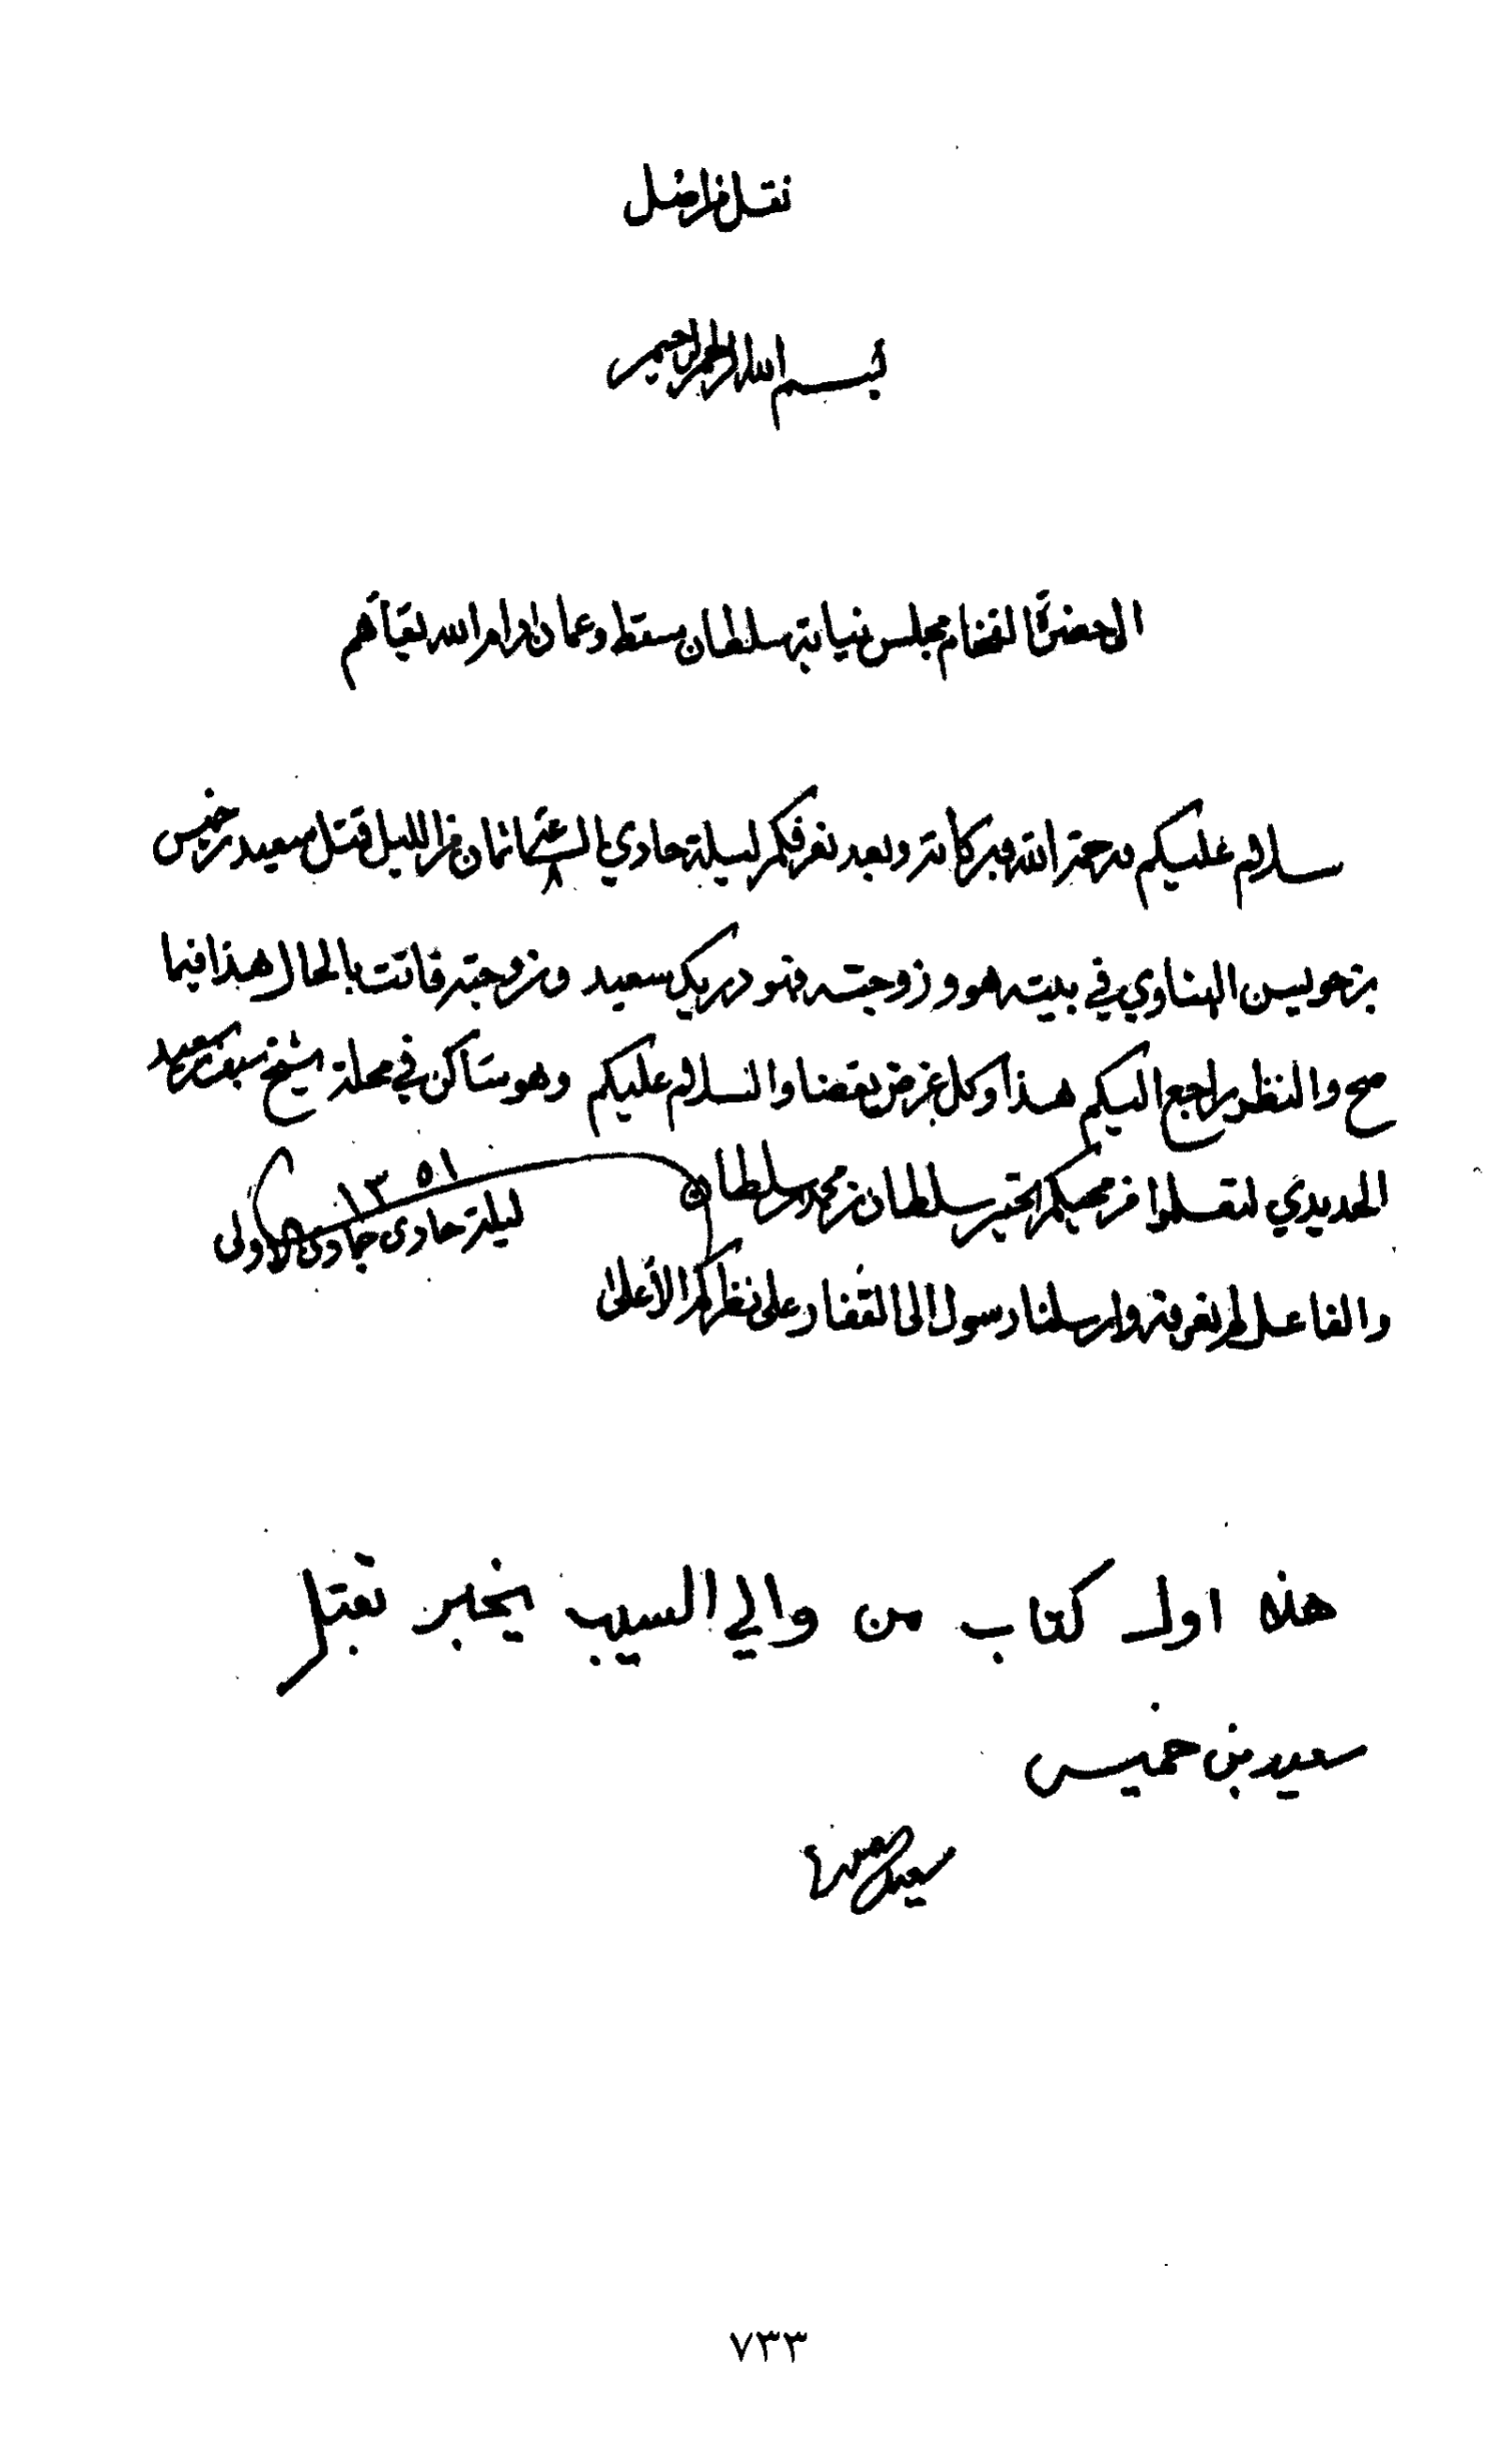 نقل من اصل
بسم الله الرحمن الرحيم
الى حضرة الفخام مجلس نيابة سلطان مسقط وعمان ادام الله بقاهم
سلام عليكم ورحمة الله وبركاته وبعد نعرفكم ليلة حادي الساعة ٨ ثمان من الليل قتل سعيد بن خميس
بن حويسن الهناوي في بيته هو وزوجته سعيد وزوجته ماتت بالحال هذا فيما
صح والنظر راجع اليكم هذا وكل غرض يقضا والسلام عليكم وهو ساكن في محلة شيخ
الحديدي لتعلموا من محبكم الحقير سلطان بن محمد بن سلطان
ليلة حادى جمادى الاولى ١٣٥١
والفاعل لم نعرفه وارسلنا رسول الى القفار وعلى نظركم الأعلى
هذه اول كتاب من والي السيب يخبر بقتل
سعيد بن خميس
٧٣٣